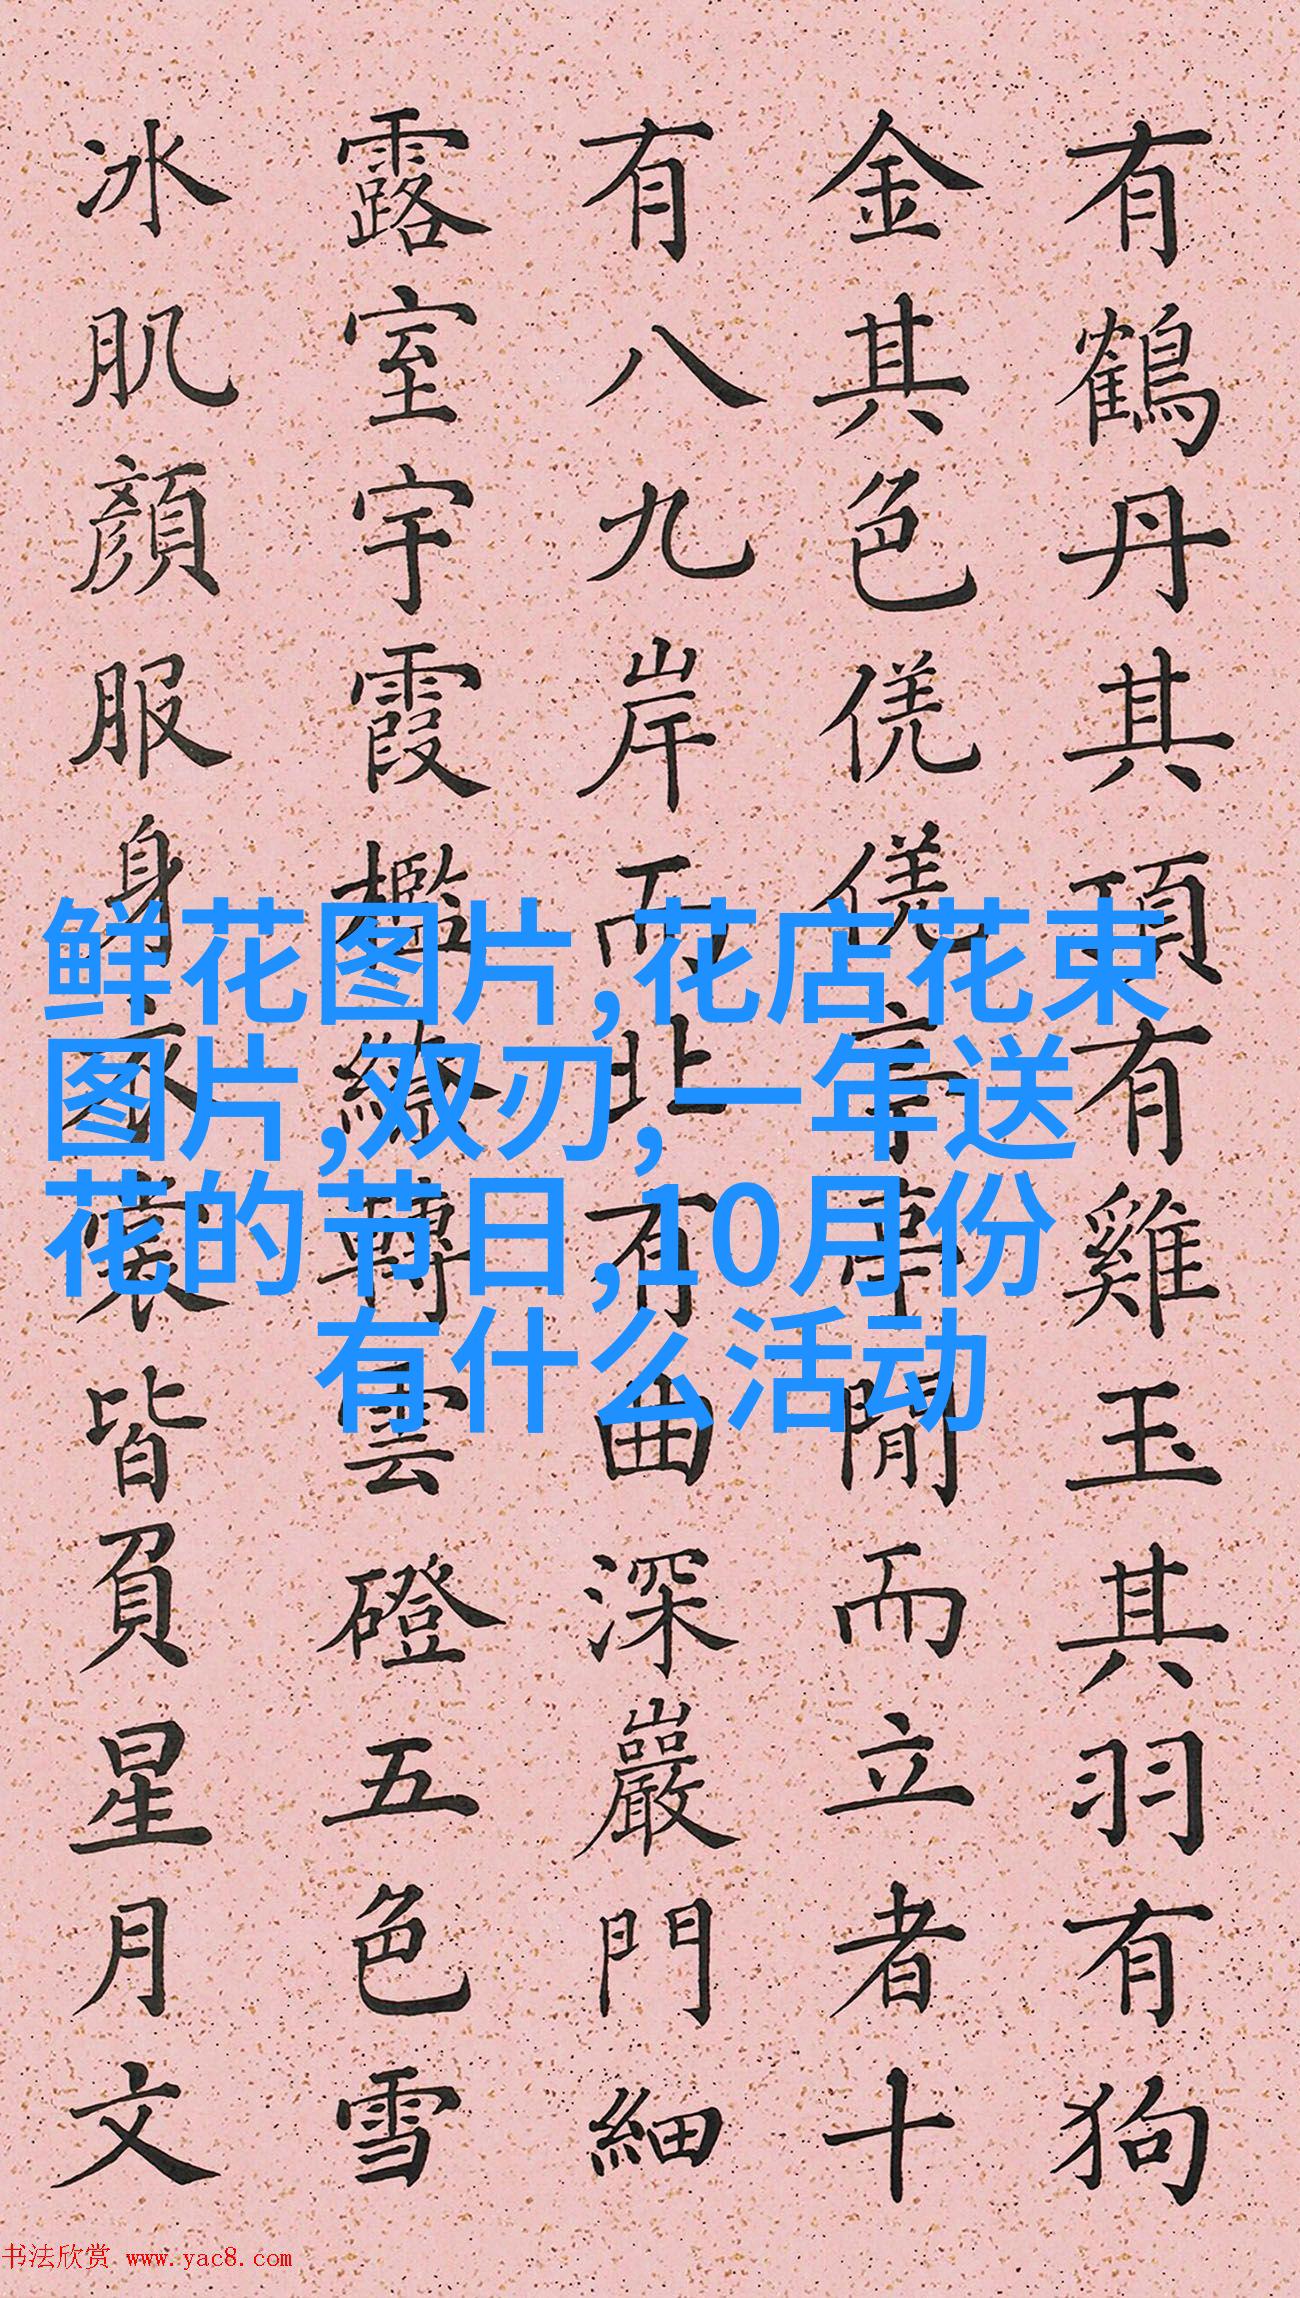 有鶴丹其頂有雞玉其羽有狗
金其色亭亭閒而立者十
有八九岸而北有曲深巖門細
露室宇霞檻繚轉雲磴五色雪
冰肌顏服身衣裳皆負星月文
鲜花图片,花店花束
图片,双刃,一年送
花的节日,10月份
有什么活动
书法欣赏 www.yac8.com